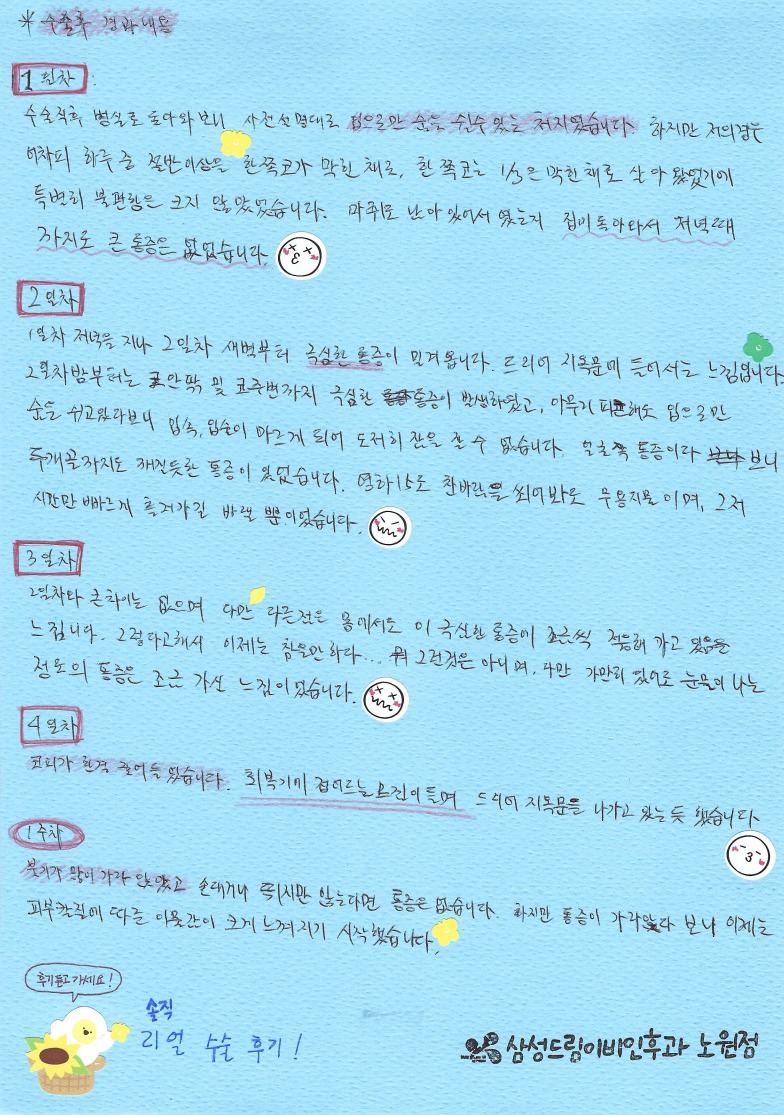 * 수술후 경과내용
1일차
수술직후 병실로 돌아와 보니 사전설명대로 입으로만 숨을 쉴수 있는 처지였습니다. 하지만 저의경우
어차피 하루 중 절반이상을 한쪽코가 막힌 채로, 한 쪽코는 1/3은 막힌 채로 살아 왔었기에
특별히 불편함은 크지 않았었습니다. 마취로 난아있어서 였는지 집이돌아와서 저녁때
까지도 큰 통증은 없었습니다.
2일차
1일차 저녁을 지나 2일차 새벽부터 극심한 통증이 밀겨옵니다. 드디어 지옥문에 들어서는 느낌입니다
2일차밤부터는 코안팍 및 코주변까지 극심한 통증이 발생하였고, 아무리 피곤해도 입으로만
숨을 쉬고있다보니 입속, 입술이 마르게 되어 도저히 잠을 잘 수 없습니다. 얼굴쪽 통증이다 보니
두개골까지도 깨질듯한 통증이 있었습니다. 영하15도 찬바람을 쐬어봐도 무용지물이며, 그저
시간만 빠르게 흘러가길 바랄 뿐이었습니다.
3일차
2일차와 큰차이는 없으며 다만 다른것은 몸에서도 이 극심한 통증에 조금씩 적응해 가고 있음을
느낍니다. 그렇다고해서 이제는 참을만하다... 뭐 그런것은 아니며, 다만 가만히 있어도 눈물이 나는
정도의 통증은 조금 가신 느낌이었습니다.
4일차
코피가 한결 줄어들 었습니다. 회복기에 접어드는 느낌이 들며 드디어 지옥문을 나가고 있는 듯 했습니다
1주차
붓기가 많이 가라 앉았고 손대거나 뛰지만 않는다면 통증은 없습니다. 하지만 통증이 가라앉다 보니 이제는
피부각질에 따른 이물감이 크게 느껴지기 시작했습니다.
후기듣고가세요!
솔직
리얼 수술 후기!
삼성드림이비인후과 노원점